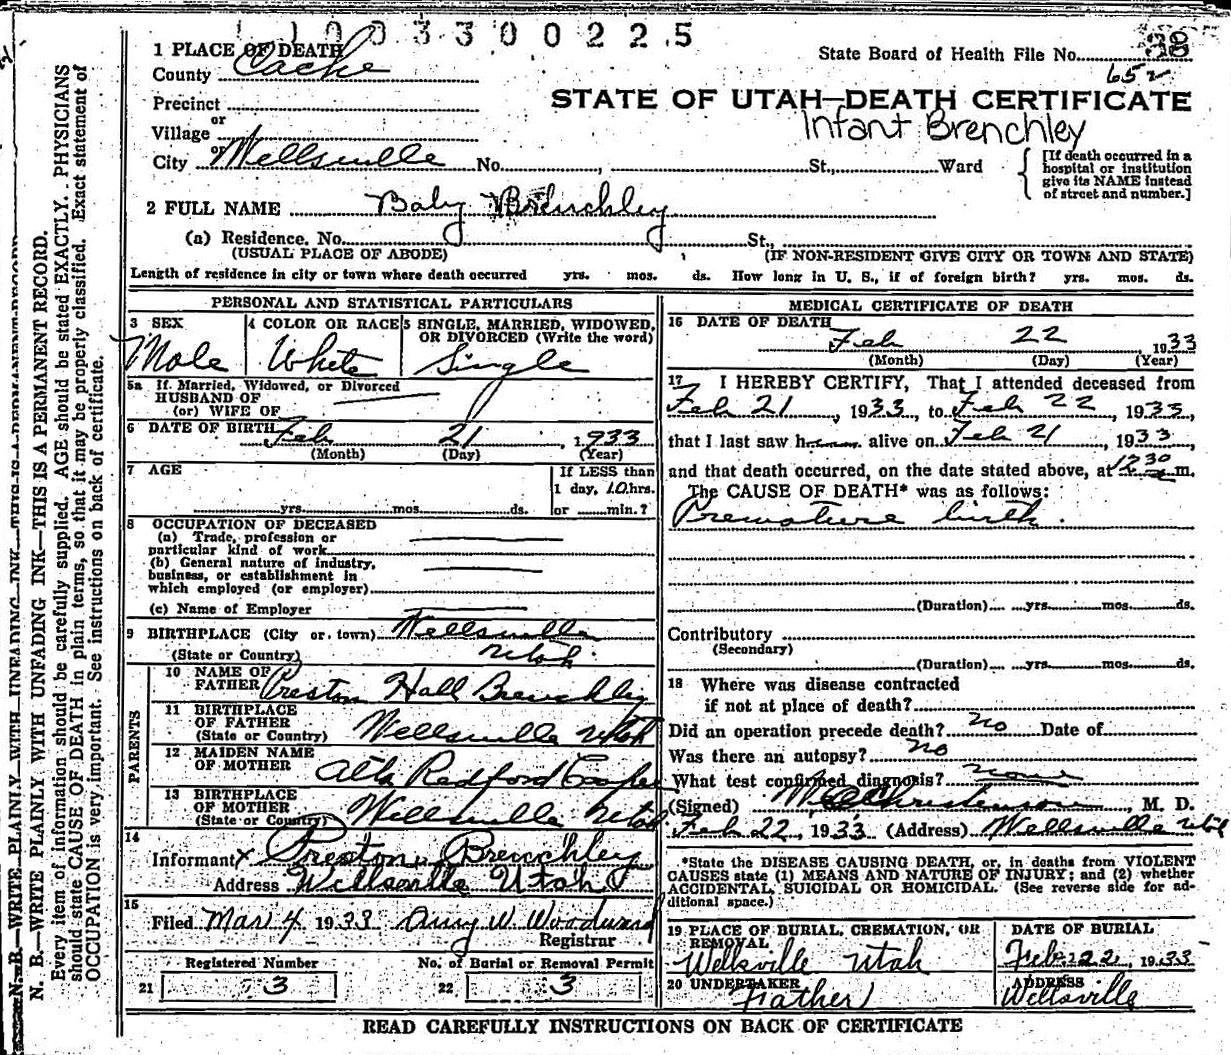 1 1 0 0 3 3 0 0 2 2 5
1 PLACE OF DEATH
County Cache
State Board of Health File No. 38
652
Precinct
or
Village
STATE OF UTAH—DEATH CERTIFICATE
Infant Brenchley
or
City Wellsville No. , St., Ward
[If death occurred in a hospital or institution give its NAME instead of street and number.]
2 FULL NAME Baby Brenchley
(a) Residence. No. St.,
(USUAL PLACE OF ABODE) (IF NON-RESIDENT GIVE CITY OR TOWN AND STATE)
Length of residence in city or town where death occurred yrs. mos. ds. How long in U. S., if of foreign birth? yrs. mos. ds.
PERSONAL AND STATISTICAL PARTICULARS
3 SEX 4 COLOR OR RACE 5 SINGLE, MARRIED, WIDOWED,
OR DIVORCED (Write the word)
Male White Single
5a If Married, Widowed, or Divorced
HUSBAND OF
(or) WIFE OF
6 DATE OF BIRTH Feb 21, 1933
(Month) (Day) (Year)
7 AGE If LESS than
1 day, 10 hrs.
yrs. mos. ds. or min.?
8 OCCUPATION OF DECEASED
(a) Trade, profession or
particular kind of work
(b) General nature of industry,
business, or establishment in
which employed (or employer)
(c) Name of Employer
9 BIRTHPLACE (City or town) Wellsville
(State or Country) Utah
PARENTS
10 NAME OF
FATHER Preston Hall Brenchley
11 BIRTHPLACE
OF FATHER
(State or Country) Wellsville Utah
12 MAIDEN NAME
OF MOTHER Alta Redford Cooper
13 BIRTHPLACE
OF MOTHER
(State or Country) Wellsville Utah
14
Informant x Preston Brenchley
Address Wellsville Utah
15
Filed Mar 4 1933 Amy W. Woodward
Registrar
Registered Number No. of Burial or Removal Permit
21 3 22 3
MEDICAL CERTIFICATE OF DEATH
16 DATE OF DEATH
Feb 22 1933
(Month) (Day) (Year)
17 I HEREBY CERTIFY, That I attended deceased from
Feb 21, 1933, to Feb 22, 1933,
that I last saw him alive on Feb 21, 1933,
and that death occurred, on the date stated above, at 1230 a m.
The CAUSE OF DEATH* was as follows:
Premature birth.
(Duration) yrs. mos. ds.
Contributory
(Secondary)
(Duration) yrs. mos. ds.
18 Where was disease contracted
if not at place of death?
Did an operation precede death? no Date of
Was there an autopsy? no
What test confirmed diagnosis? none
(Signed) Christenson, M. D.
Feb 22, 1933 (Address) Wellsville Utah
*State the DISEASE CAUSING DEATH, or, in deaths from VIOLENT
CAUSES state (1) MEANS AND NATURE OF INJURY; and (2) whether
ACCIDENTAL, SUICIDAL OR HOMICIDAL. (See reverse side for ad-
ditional space.)
19 PLACE OF BURIAL, CREMATION, OR
REMOVAL
Wellsville Utah
DATE OF BURIAL
Feb. 22, 1933
20 UNDERTAKER
Father
ADDRESS
Wellsville
READ CAREFULLY INSTRUCTIONS ON BACK OF CERTIFICATE
N. B.—WRITE PLAINLY WITH UNFADING INK—THIS IS A PERMANENT RECORD
N. B.—WRITE PLAINLY WITH UNFADING INK—THIS IS A PERMANENT RECORD.
Every item of information should be carefully supplied. AGE should be stated EXACTLY. PHYSICIANS
should state CAUSE OF DEATH in plain terms, so that it may be properly classified. Exact statement of
OCCUPATION is very important. See instructions on back of certificate.